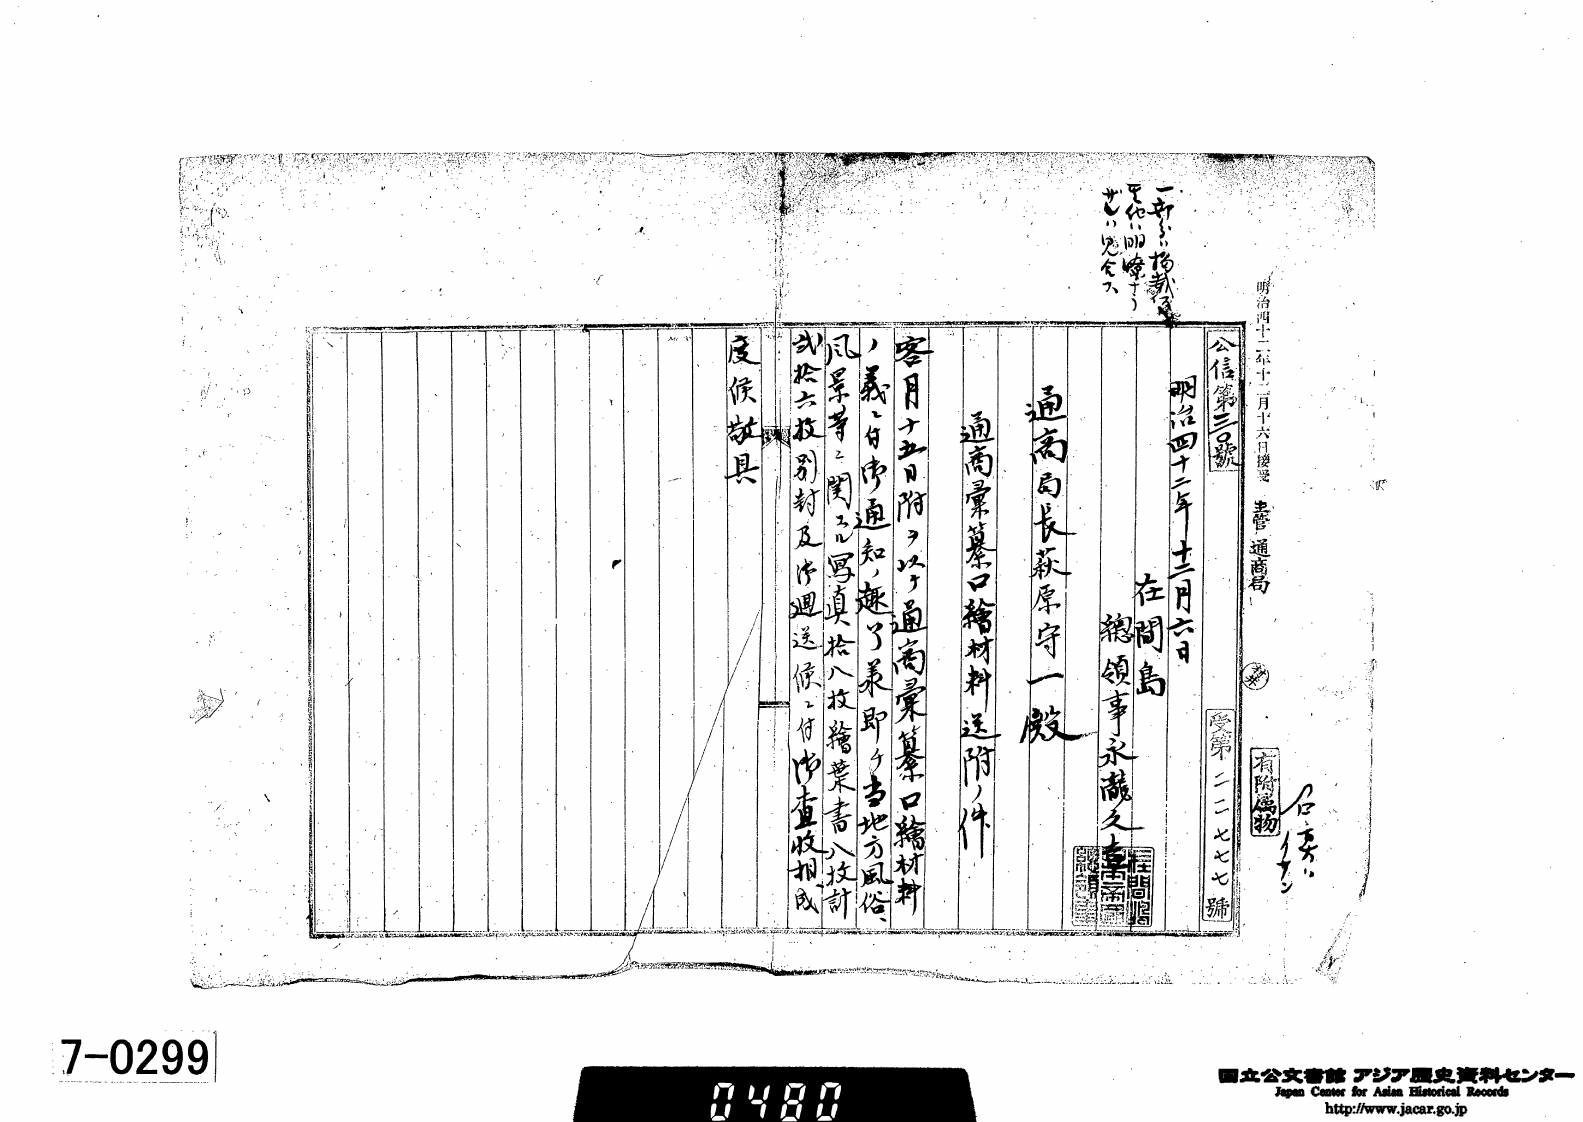 明治四十二年十二月十六日接受 主管 通商局
有附属物
公信第三〇號
受第二二七七七號
明治四十二年十二月六日
在間島
總領事永瀧久吉
通商局長萩原守一殿
通商彙纂口繪材料送附ノ件
客月十五日附ヲ以テ通商彙纂口繪材料
ノ義ニ付御通知ノ趣了承即チ当地方風俗、
風景等ニ関スル写真拾八枚繪葉書八枚計
弐拾六枚別封及御廻送候ニ付御査収相成
度候敬具
一部分ハ掲載
其他ハ明瞭ナラ
ザレハ見合ス
7-0299
0480
国立公文書館 アジア歴史資料センター
Japan Center for Asian Historical Records
http://www.jacar.go.jp